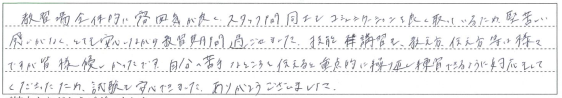 教習場全体的に雰囲気が良く、スタッフ間同士もコミュニケーションを良く取っているため、堅苦しい
感じがなく、とても安心しながら教習期間過ごせました。技能 講習も、教え方、伝え方等は様々
ですが皆様優しかったです。自分の苦手なところを伝えると重点的に繰り返し練習できるように対応をして
くださったため、試験も安心できました。ありがとうございました。